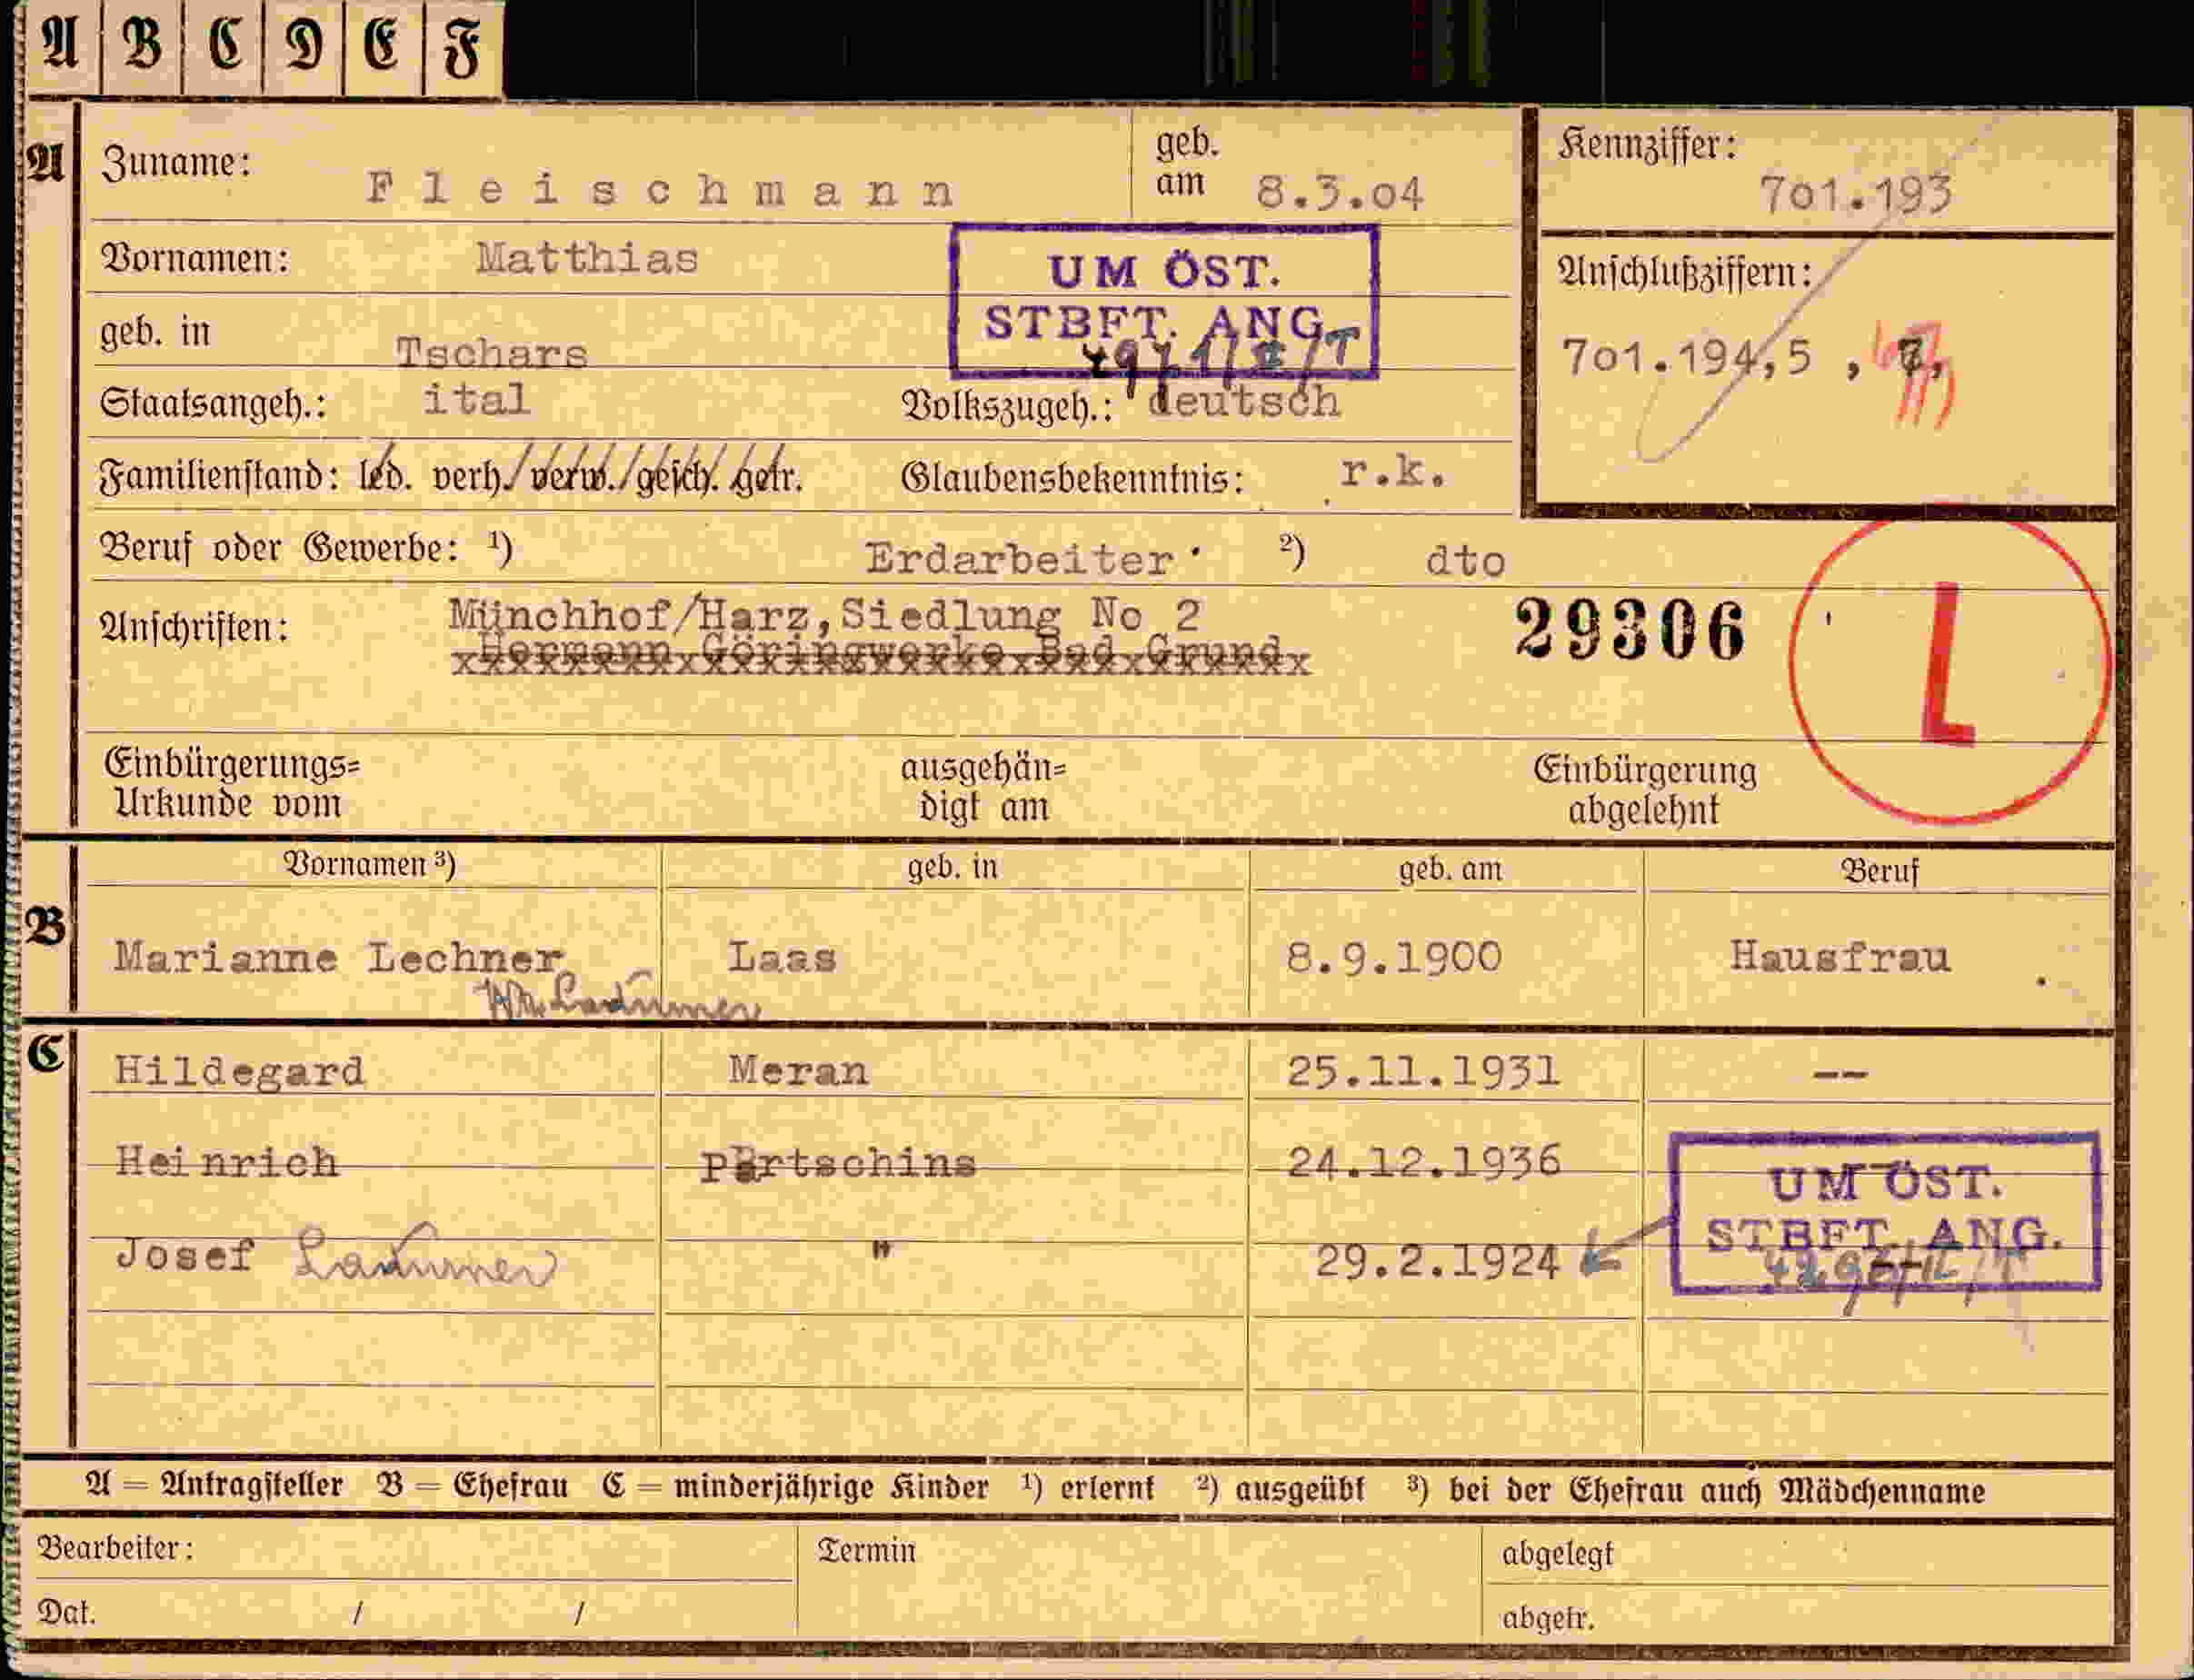 A B C D E F
A Zuname: Fleischmann geb. am 8.3.04 Kennziffer: 701.193
Vornamen: Matthias
UM ÖST.
STBFT. ANG.
Anschlußziffern:
701.194,5 ,
geb. in Tschars
Staatsangeh.: ital Volkszugeh.: deutsch
Familienstand: led. verh./verw./gesch. getr. Glaubensbekenntnis: r.k.
Beruf oder Gewerbe: ¹) Erdarbeiter ²) dto
Anschriften: Münchhof/Harz,Siedlung No 2
Hermann Göringwerke Bad Grund
29306
L
Einbürgerungs= ausgehän= Einbürgerung
Urkunde vom digt am abgelehnt
Vornamen ³) geb. in geb. am Beruf
B Marianne Lechner Laas 8.9.1900 Hausfrau
C Hildegard Meran 25.11.1931 --
Heinrich Partschins 24.12.1936
UM ÖST.
STBFT. ANG.
Josef " 29.2.1924
A = Antragsteller B = Ehefrau C = minderjährige Kinder ¹) erlernt ²) ausgeübt ³) bei der Ehefrau auch Mädchenname
Bearbeiter: Termin abgelegt
Dat. / / abgetr.